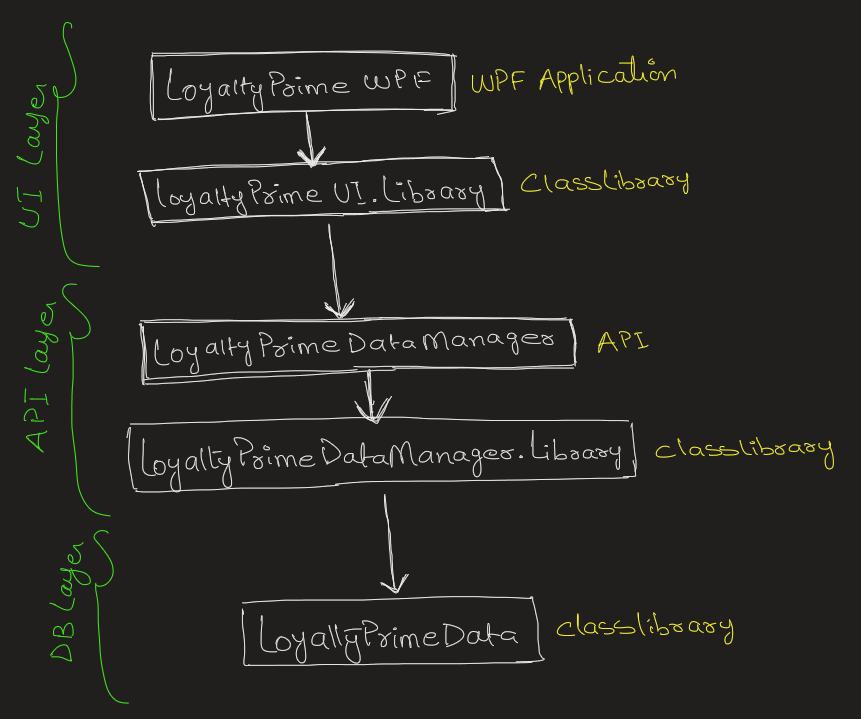 LoyaltyPrime WPF WPF Application
UI Layer
LoyaltyPrime UI.Library ClassLibrary
LoyaltyPrime DataManager API
API Layer
LoyaltyPrimeDataManager.Library classlibrary
DB Layer
LoyaltyPrimeData classlibrary